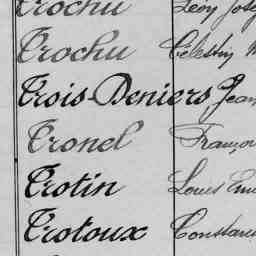 Trochu Léon Jose
Trochu Célestin M
Trois-Deniers Jean
Tronel Françoi
Trotin Louis Em
Trotoux Constan